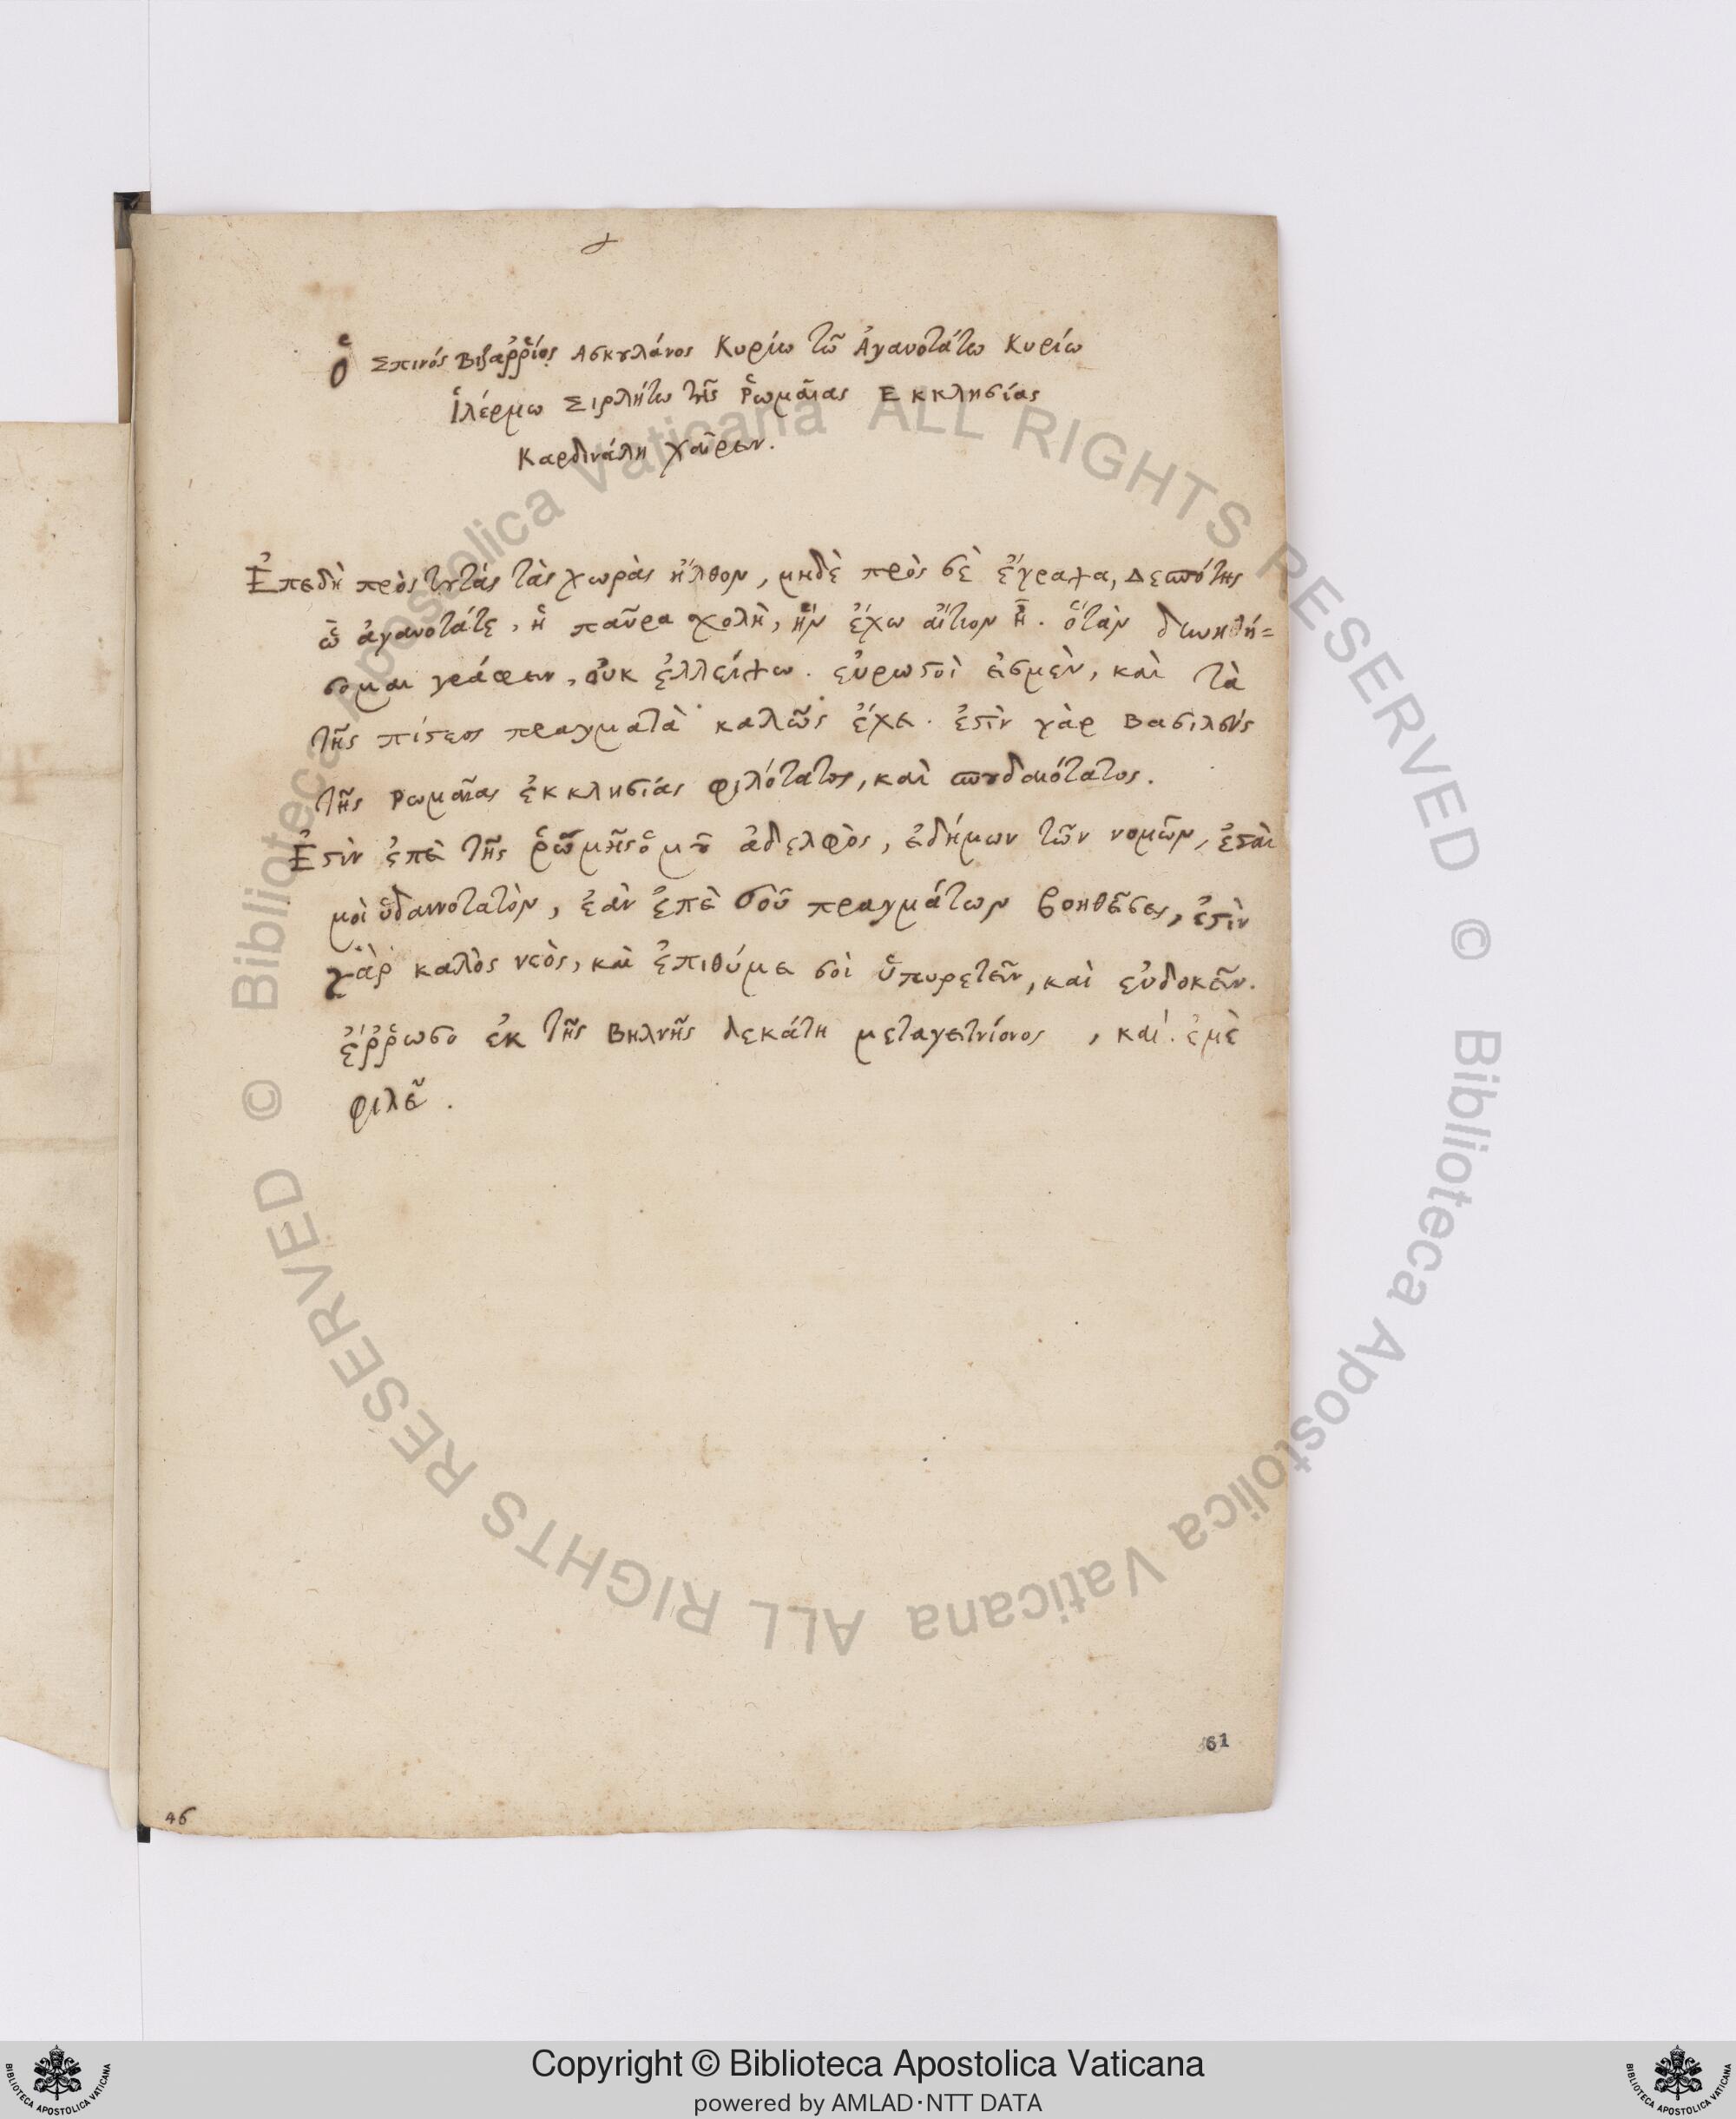 Ὁ Σπινός Βιζαῤῥίος Ασκȣλάνος Κυρίω τῶ Ἀγανοτάτω Κυρίω
Ἱλέρμω Σιρλήτω τῆς Ῥωμαῖας Εκκλησίας
Καρδινάλη χαῖρειν.
Ἐπειδὴ πρὸς τȣτάς τὰς χωρὰς ἤλθον, μηδὲ πρὸς σὲ ἔγραψα, Δεσπότης
ὦ ἀγανοτάτε, ἡ παῦρα σχολὴ, ἣν ἔχω αἴτιον ἦ. ὅτὰν δυνηθή=
σομαι γράφειν, οὐκ ἐλλείψω. εὐρωστοὶ εἰσμὲν, καὶ τὰ
τῆς πίστεος πραγματὰ καλῶς ἔχει. ἐστὶν γὰρ Βασιλεύς
τῆς Ρωμαῖας ἐκκλησιάς φιλότατος, καὶ σπȣδαιότατος.
Ἐστὶν ἐπεὶ τῆς ῥώμῆς ὁ μȣ ἀδελφὸς, εἰδήμων τῶν νομῶν, ἐσταὶ
μοὶ ἡδαινοτατὸν, ἐὰν ἐπεὶ σοῦ πραγμάτων βοηθεῖσεις, ἐστὶν
γὰρ καλὸς νεὸς, καὶ ἐπιθύμει σοὶ ὑπυρετεῖν, καὶ εὐδοκεῖν.
ἔῤῥωσο ἐκ τῆς Βηλνῆς δεκάτη μεταγειτνίονος, καί ἐμὲ
φιλεῖ.
61
46
© Biblioteca Apostolica Vaticana ALL RIGHTS RESERVED
© Biblioteca Apostolica Vaticana ALL RIGHTS RESERVED
BIBLIOTECA APOSTOLICA VATICANA
Copyright © Biblioteca Apostolica Vaticana
powered by AMLAD·NTT DATA
BIBLIOTECA APOSTOLICA VATICANA